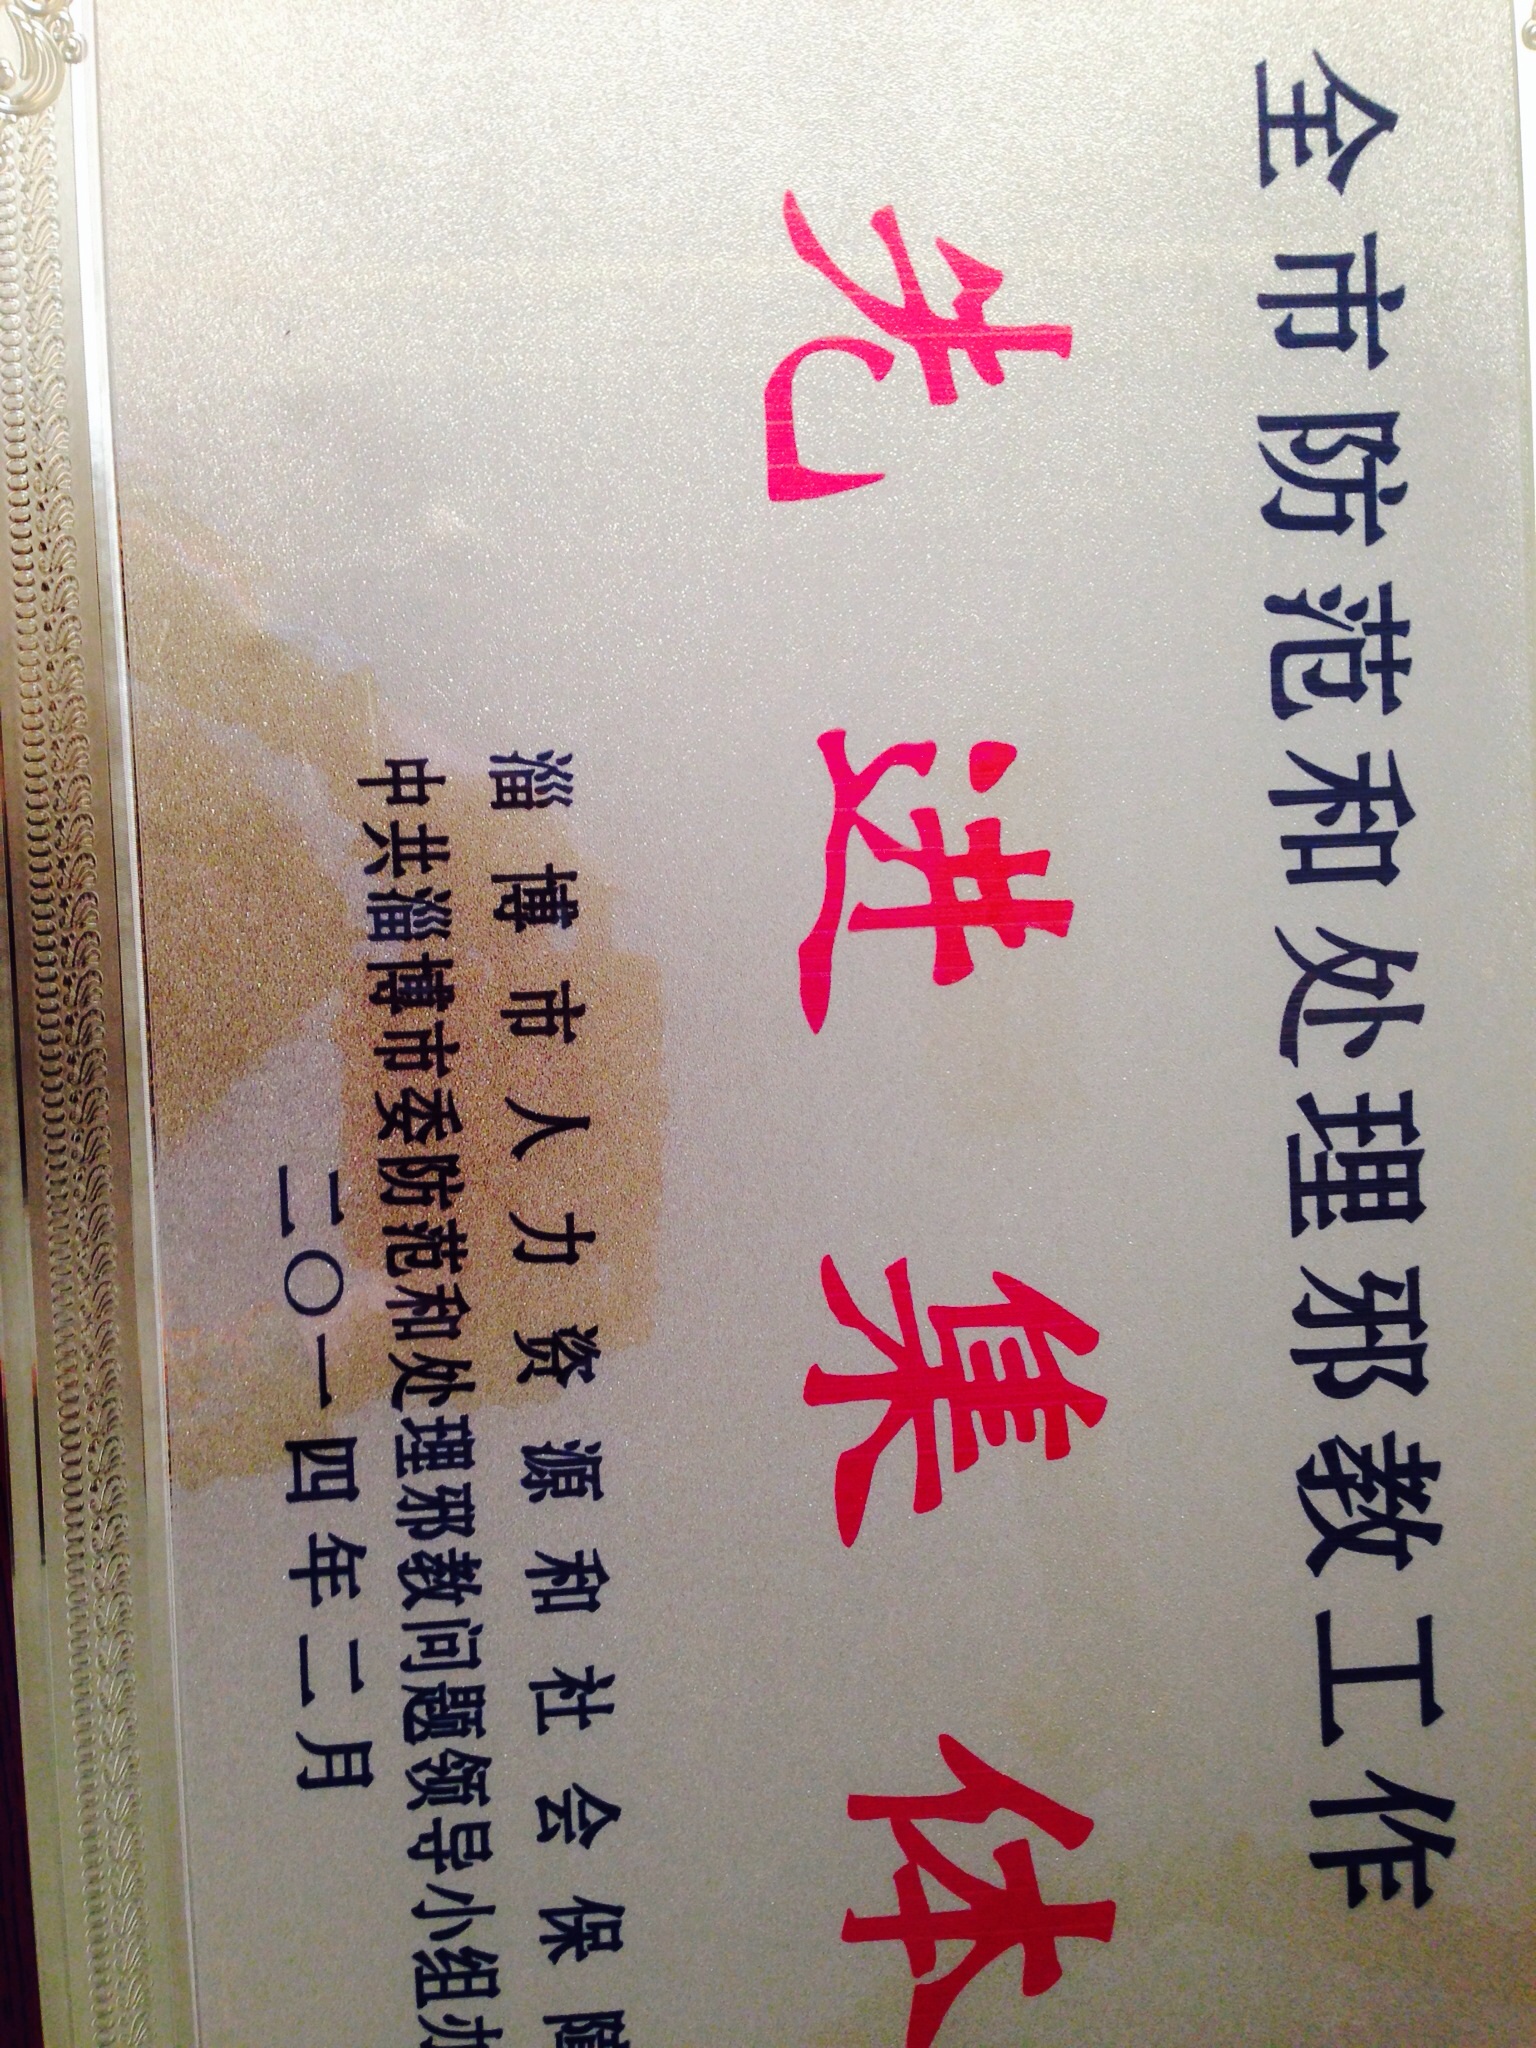 全市防范和处理邪教工作
先进集体
淄博市人力资源和社会保障
中共淄博市委防范和处理邪教问题领导小组办
二〇一四年二月